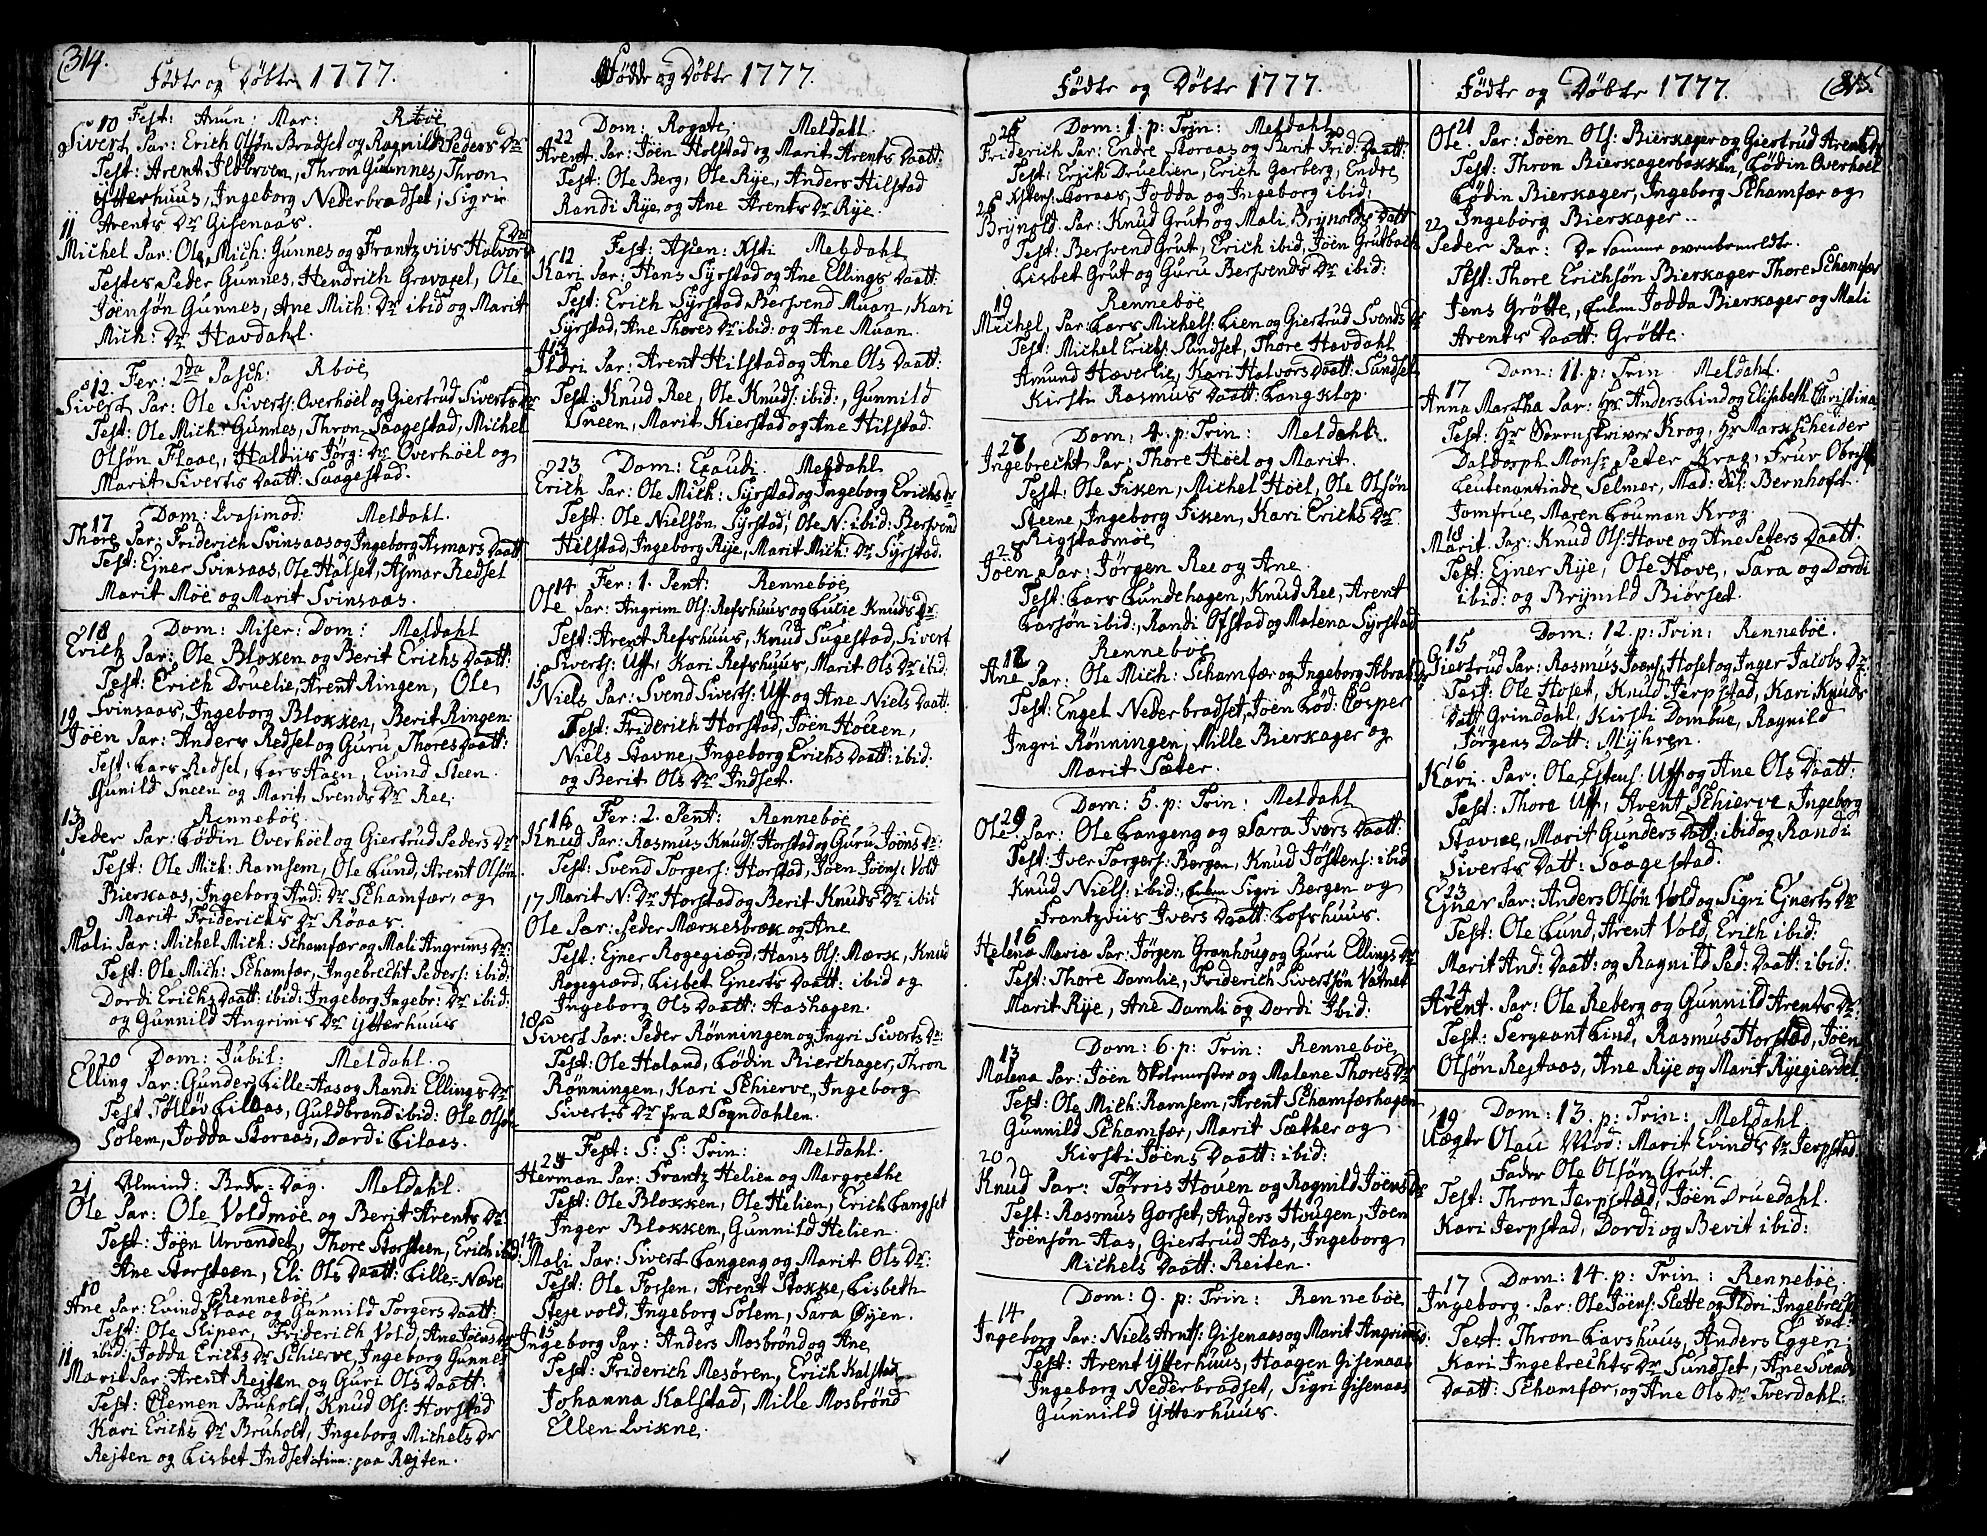 314.
Födte og Döbte 1777.
Fest: Anun: Mar: Rböe
10
Sivert Par: Erich Olsön Bradset og Ragnild Peders Dr
Test: Arent Ildbrven, Thron Gunnes, Thron
Ytterhuus, Ingeborg Nederbradset, Sigri
Arents Dr Gisenaas.
11
Michel Par: Ole Mich: Gunnes og Frantzviis Halvors Dr
Testes Peder Gunnes, Hendrich Gravasel, Ole
Joensön Gunnes, Ane Mich: Dr ibid og Marit
Mich: Dr Havdahl.
12. Fer: 2da Pasch: Rböe
Sivert Par: Ole Siverts: Overhöel og Giertrud Siverts Dr
Test: Ole Mich: Gunnes, Thron Saagestad, Michel
Olsön Flaae, Haldiis Jörg: Dr Overhöel og
Marit Siverts Daatt: Saagestad.
17 Dom: Qvasimod: Meldahl.
Thore Par: Friderich Svinsaas og Ingeborg Asmars Daatt
Test: Ejner Svinsaas, Ole Halset, Asmar Redsel
Marit Möe og Marit Svinsaas.
18 Dom: Miser: Dom: Meldahl
Erich Par: Ole Bloxen og Berit Erichs Daatt:
Test: Erich Druelie, Arent Ringen, Ole
Svinsaas, Ingeborg Blokken, Berit Ringen.
19
Joen Par: Anders Redsel og Guru Thores Daatt:
Test: Lars Redsel, Lars Aaen, Evind Steen
Gunild Sneen og Marit Svends Dr Ree.
13 Renneböe
Peder Par: Lödin Overhöel og Giertrud Peders Dr
Test: Ole Mich: Ramsem, Ole Lund, Arent Olsön
Bierkaas, Ingeborg And: Dr Schamfær, og
Marit Friderichs Dr Röaas.
9
Mali Par: Michel Mich: Schamfær og Mali Angrims Dr:
Test: Ole Mich: Schamfær, Ingebrecht Peders: ibid:
Dordi Erichs Daatt: ibid: Ingeborg Ingebr: Dr ibid:
og Gunnild Angrims Dr Ytterhuus
20 Dom: Jubil: Meldahl.
Elling Par: Gunder Lille-Aas og Randi Ellings Dr
Test Tölløv Lilaas, Guldbrand ibid: Ole Olsön
Solem, Jodda Storaas, Dordi Lilaas.
21 Almind: Beds-Dag. Meldahl.
Ole Par: Ole Voldmöe og Berit Arents Dr:
Test: Jöen Urvandet, Thore Storsteen, Erich ibid:
Ane Storsteen, Eli Ols Daatt: Lille-Næve
10 Rennebøe
Ane Par: Evind Flaae og Gunnild Torgers Daatt:
Test: Ole Skiper, Friderich Vold, Ane Jöens Dr
ibid: Jodda Erichs Dr Schierve, Ingeborg Gunnes
11
Marit Par: Arent Rejten og Guri Ols Daatt:
Test: Clemen Bruholt, Knud Ols: Horstad
Kari Erichs Dr Bruholt, Ingeborg Michels Dr
Rejten og Lisbet Indset paa Rejten.
Födde og Döbte 1777.
22 Dom: Rogate. Meldahl.
Arent. Par: Jöen Holstad og Marit Arents Daatt:
Test: Ole Berg, Ole Rye, Anders Hilstad
Randi Rye, og Ane Arents Dr Rye.
12 Fest: Ascen: Xsti Meldahl
Kari Par: Hans Syrstad og Ane Ellings Daatt:
Test: Erich Syrstad, Bersvend Muan, Kari
Syrstad, Ane Thores Dr ibid: og Ane Muan.
13
Ildri Par: Arent Hilstad og Ane Ols Daatt:
Test: Knud Ree, Ole Knuds: ibid:, Gunnild
Sneen, Marit Kierstad og Ane Hilstad.
23 Dom: Exaudi. Meldahl
Erich Par: Ole Mich: Syrstad og Ingeborg Erichs Dr
Test: Ole Nielsön Syrstad, Ole N: ibid: Bersvend
Hilstad, Ingeborg Rye, Marit Mich: Dr Syrstad.
14 Fer: 1. Pent: Rennebøe
Ole Par: Angrim Ols: Refshuus og Lucie Knuds Dr.
Test: Arent Refshuus, Knud Sugestad, Sivert
Siverts: Uff, Kari Refshuus, Marit Ols Dr ibid.
15
Niels Par: Svend Siverts: Uff og Ane Niels Daatt:
Test: Friderich Horstad, Jöen Houen,
Niels Stavne, Ingeborg Erichs Daatt: ibid:
og Berit Ols Dr Indset.
16 Fer: 2. Pent: Rennebøe
Knud Par: Rasmus Knuds: Horstad og Guru Joens Dr:
Test: Svend Torgers: Horstad, Joen Joens: Vold
Marit N: Dr Horstad og Berit Knuds Dr ibid
17
Ole Par: Peder Mærkesbræk og Ane
Test: Ejner Rogegiærd, Hans Ols: Mærk, Knud
Rogegiærd, Lisbet Ejnerts Daatt: ibid og
Ingeborg Ols Daatt: Aashagen.
18
Sivert Par: Peder Rönningen og Ingri Siverts Dr:
Test: Ole Haland, Lödin Bierkhager, Thron
Rønningen, Kari Schierve, Ingeborg
Siverts Dr fra Sogndahlen.
24 Fest: S: S: Trin: Meldahl.
Herman Par: Frantz Helien og Margrethe
Test: Ole Blokken, Ole Helien, Erich Langset
Inger Blokken, Gunnild Helien.
14
Mali Par: Sivert Langeng og Marit Ols Dr:
Test: Ole Forsen, Arent Stokke, Lisbeth
Stejevold, Ingeborg Solem, Sara Øyen.
15
Ingeborg Par: Anders Mosbrönd og Ane
Test: Friderich Mesören, Erich Kalstad
Johanna Kalstad, Mille Mosbrönd
Ellen Qvikne.
Födte og Döbte 1777.
25 Dom: 1. p: Trin: Meldahl
Friderich Par: Endre Storaas og Berit Frid: Daatt:
Test: Erich Druelien, Erich Garberg, Endre
Storaas, Jodda og Ingeborg ibid.
26
Brynold. Par: Knud Grut og Mali Brynolds Datt
Test: Bersvend Grut, Erich ibid, Jöen Grutbak
Lisbet Grut og Guru Bersvends Dr ibid:
19 Rennebøe
Michel, Par: Lars Michels: Lien og Giertrud Svends Dr
Test: Michel Erichs: Sundset, Thore Havdahl
Amund Hæverlie, Kari Halvors Daatt: Sundset
Kirsti Rasmus Daatt: Langklop.
27 Dom: 4. p: Trin: Meldahl.
Ingebrecht Par: Thore Höel og Marit.
Test: Ole Fixen, Michel Höel, Ole Olsön
Steene, Ingeborg Fixen, Kari Erichs Dr.
Rigstadmöe
28
Joen Par: Jörgen Ree og Ane.
Test: Lars Lundehagen, Knud Ree, Arent
Larsön ibid:, Randi Ofstad og Malena Syrstad
12 Rennebøe
Ane Par: Ole Mich: Schamfær og Ingeborg
Test: Engel Nederbradset, Joen Löd: Casper
Ingri Rønningen, Mille Bierkager og
Marit Sæter.
29 Dom: 5. p: Trin: Meldahl
Ole. Par: Ole Langeng og Sara Ivers Daatt:
Test: Iver Torgers: Bergen, Knud Jöstens: ibid
Knud Niels: ibid: Sigri Bergen og
Frantzviis Ivers Daatt: Lofshuus.
16
Helena Maria Par: Jörgen Granhoug og Guru Ellings Dr
Test: Thore Damlie, Friderich Sivertsön Vatnet
Marit Rye, Ane Damli og Dordi Ibid:
13 Dom: 6. p: Trin: Rennebøe
Malena Par: Jöen Skolemester og Malene Thores Dr
Test: Ole Mich: Ramsem, Arent Schamfærhagen
Gunnild Schamfær, Marit Sæther og
Kirsti Jöens Daatt: ibid:
20
Knud Par: Torris Houen og Ragnild Jöens Dr
Test: Rasmus Gorset, Anders Hougen, Joen
Joensön Aas, Giertrud Aas, Ingeborg
Michels Daatt: Reiten.
14 Dom: 9. p: Trin: Rennebøe
Ingeborg Par: Niels Arnts: Gisenaas og Marit Angrims Dr:
Test: Arent Ytterhuus, Haagen Gisenaas
Ingeborg Nederbradset, Sigri Gisenaas
Gunnild Ytterhuus.
Födte og Döbte 1777.
315.
21
Ole. Par: Joen Ols: Bierkager og Giertrud Arents Dr
Test: Thron Bierkagerbakken, Lödin Overhöel
Lödin Bierkager, Ingeborg Schamfær og
Ingeborg Bierkager..
22
Peder Par: De samme ovenbemeldte.
Test: Thore Erichsön Bierkager Thore Schamfær
Jens Grötte, Jodda Bierkager og Mali
Arents Daatt: Grötte.
Dom: 11. p: Trin Meldahl.
17
Anna Martha Par: Hr Anders Lind og Elisabeth Christina
Test: Hr Sorenskriver Krog, Hr Markscheider
Daldorph Monsr Peder Krog, Frue Obrist
Leutenantinde Selmer, Mad: Bernhoft.
Jomfrue Maren Louman Krog.
18
Marit. Par: Knud Ols: Hove og Ane Peters Daatt:
Test: Ejner Rye, Ole Hove, Sara og Dordi
ibid: og Brynild Biörset.
15 Dom: 12. p: Trin: Rennebøe.
Giertrud Par: Rasmus Joens: Hoset og Inger Jacobs Dr:
Test: Ole Hoset, Knud Jerpstad, Kari Knuds
Datt Grindahl, Kirsti Dombue, Ragnild
Jörgens Datt: Myhren.
16
Kari. Par: Ole Estens: Uff og Ane Ols Daatt:
Test: Thore Uff, Arent Schierve Ingeborg
Stavne, Marit Gunders Datt: ibid og Randi
Siverts Datt: Saagestad.
23
Ejner Par: Anders Olsön Vold og Sigri Ejnerts Dr
Test: Ole Lund, Arent Vold, Erich ibid:
Marit And: Daatt: og Ragnild Ped: Daatt: ibid:
24
Arent. Par: Ole Reberg og Gunnild Arents Dr
Test: Sergeant Lind, Rasmus Horstad, Jöen
Olsön Rejtaas, Ane Rye og Marit Ryegierdet.
19 Dom: 13. p: Trin: Meldahl
Uægte Olau Mod: Marit Evinds Dr Jerpstad
Fader Ole Olsön Grut.
Test: Thron Jerpstad, Jöen Druedahl.
Kari Jerpstad, Dordi og Berit ibid:
17 Dom: 14. p: Trin: Rennebøe
Ingeborg. Par: Ole Joens: Slette og Ildri Ingebrechts Dat:
Test: Thron Lavshuus, Anders Eggen
Kari Ingebrechts Dr Sundset, Ane Svends
Daatt: Schamfær, og Ane Ols Dr Sverdahl: